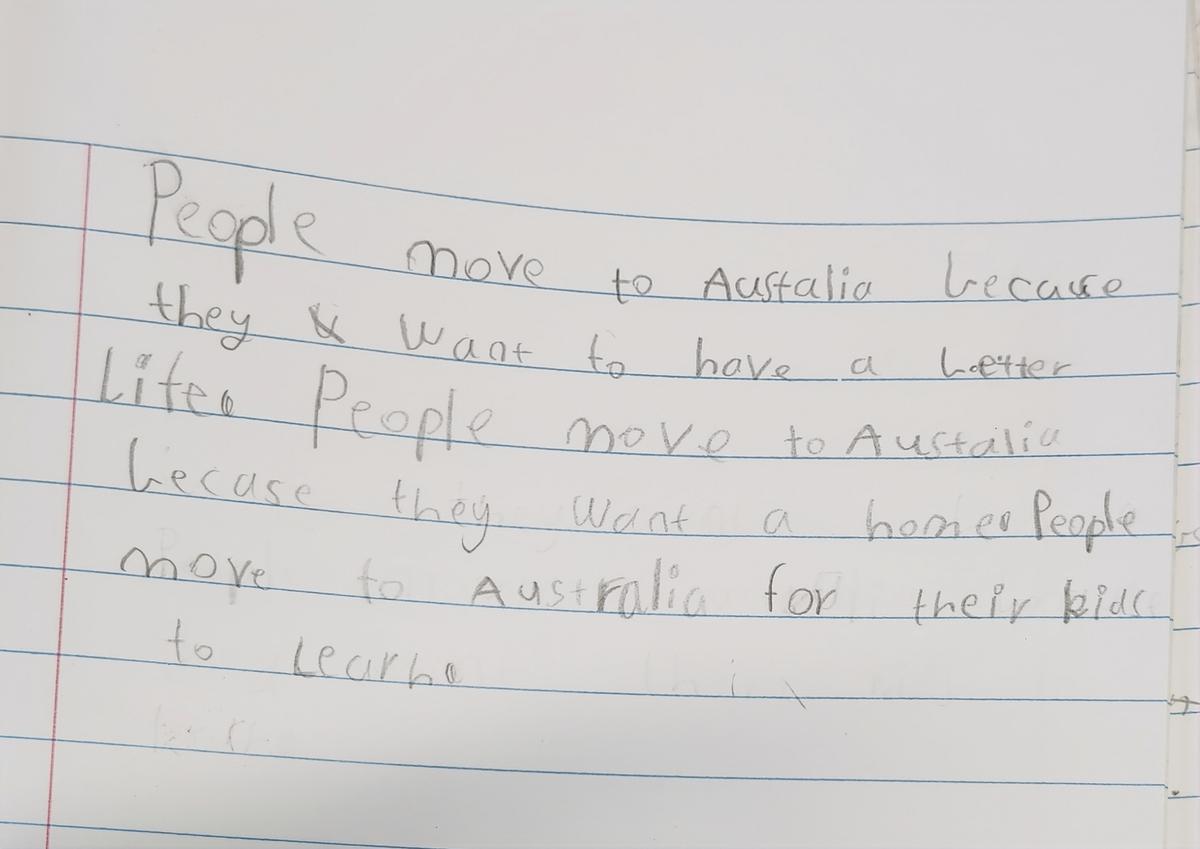 People move to Austalia because
they want to have a better
Life. People move to Austalia
becase they want a home. People
move to Australia for their kids
to Learn.